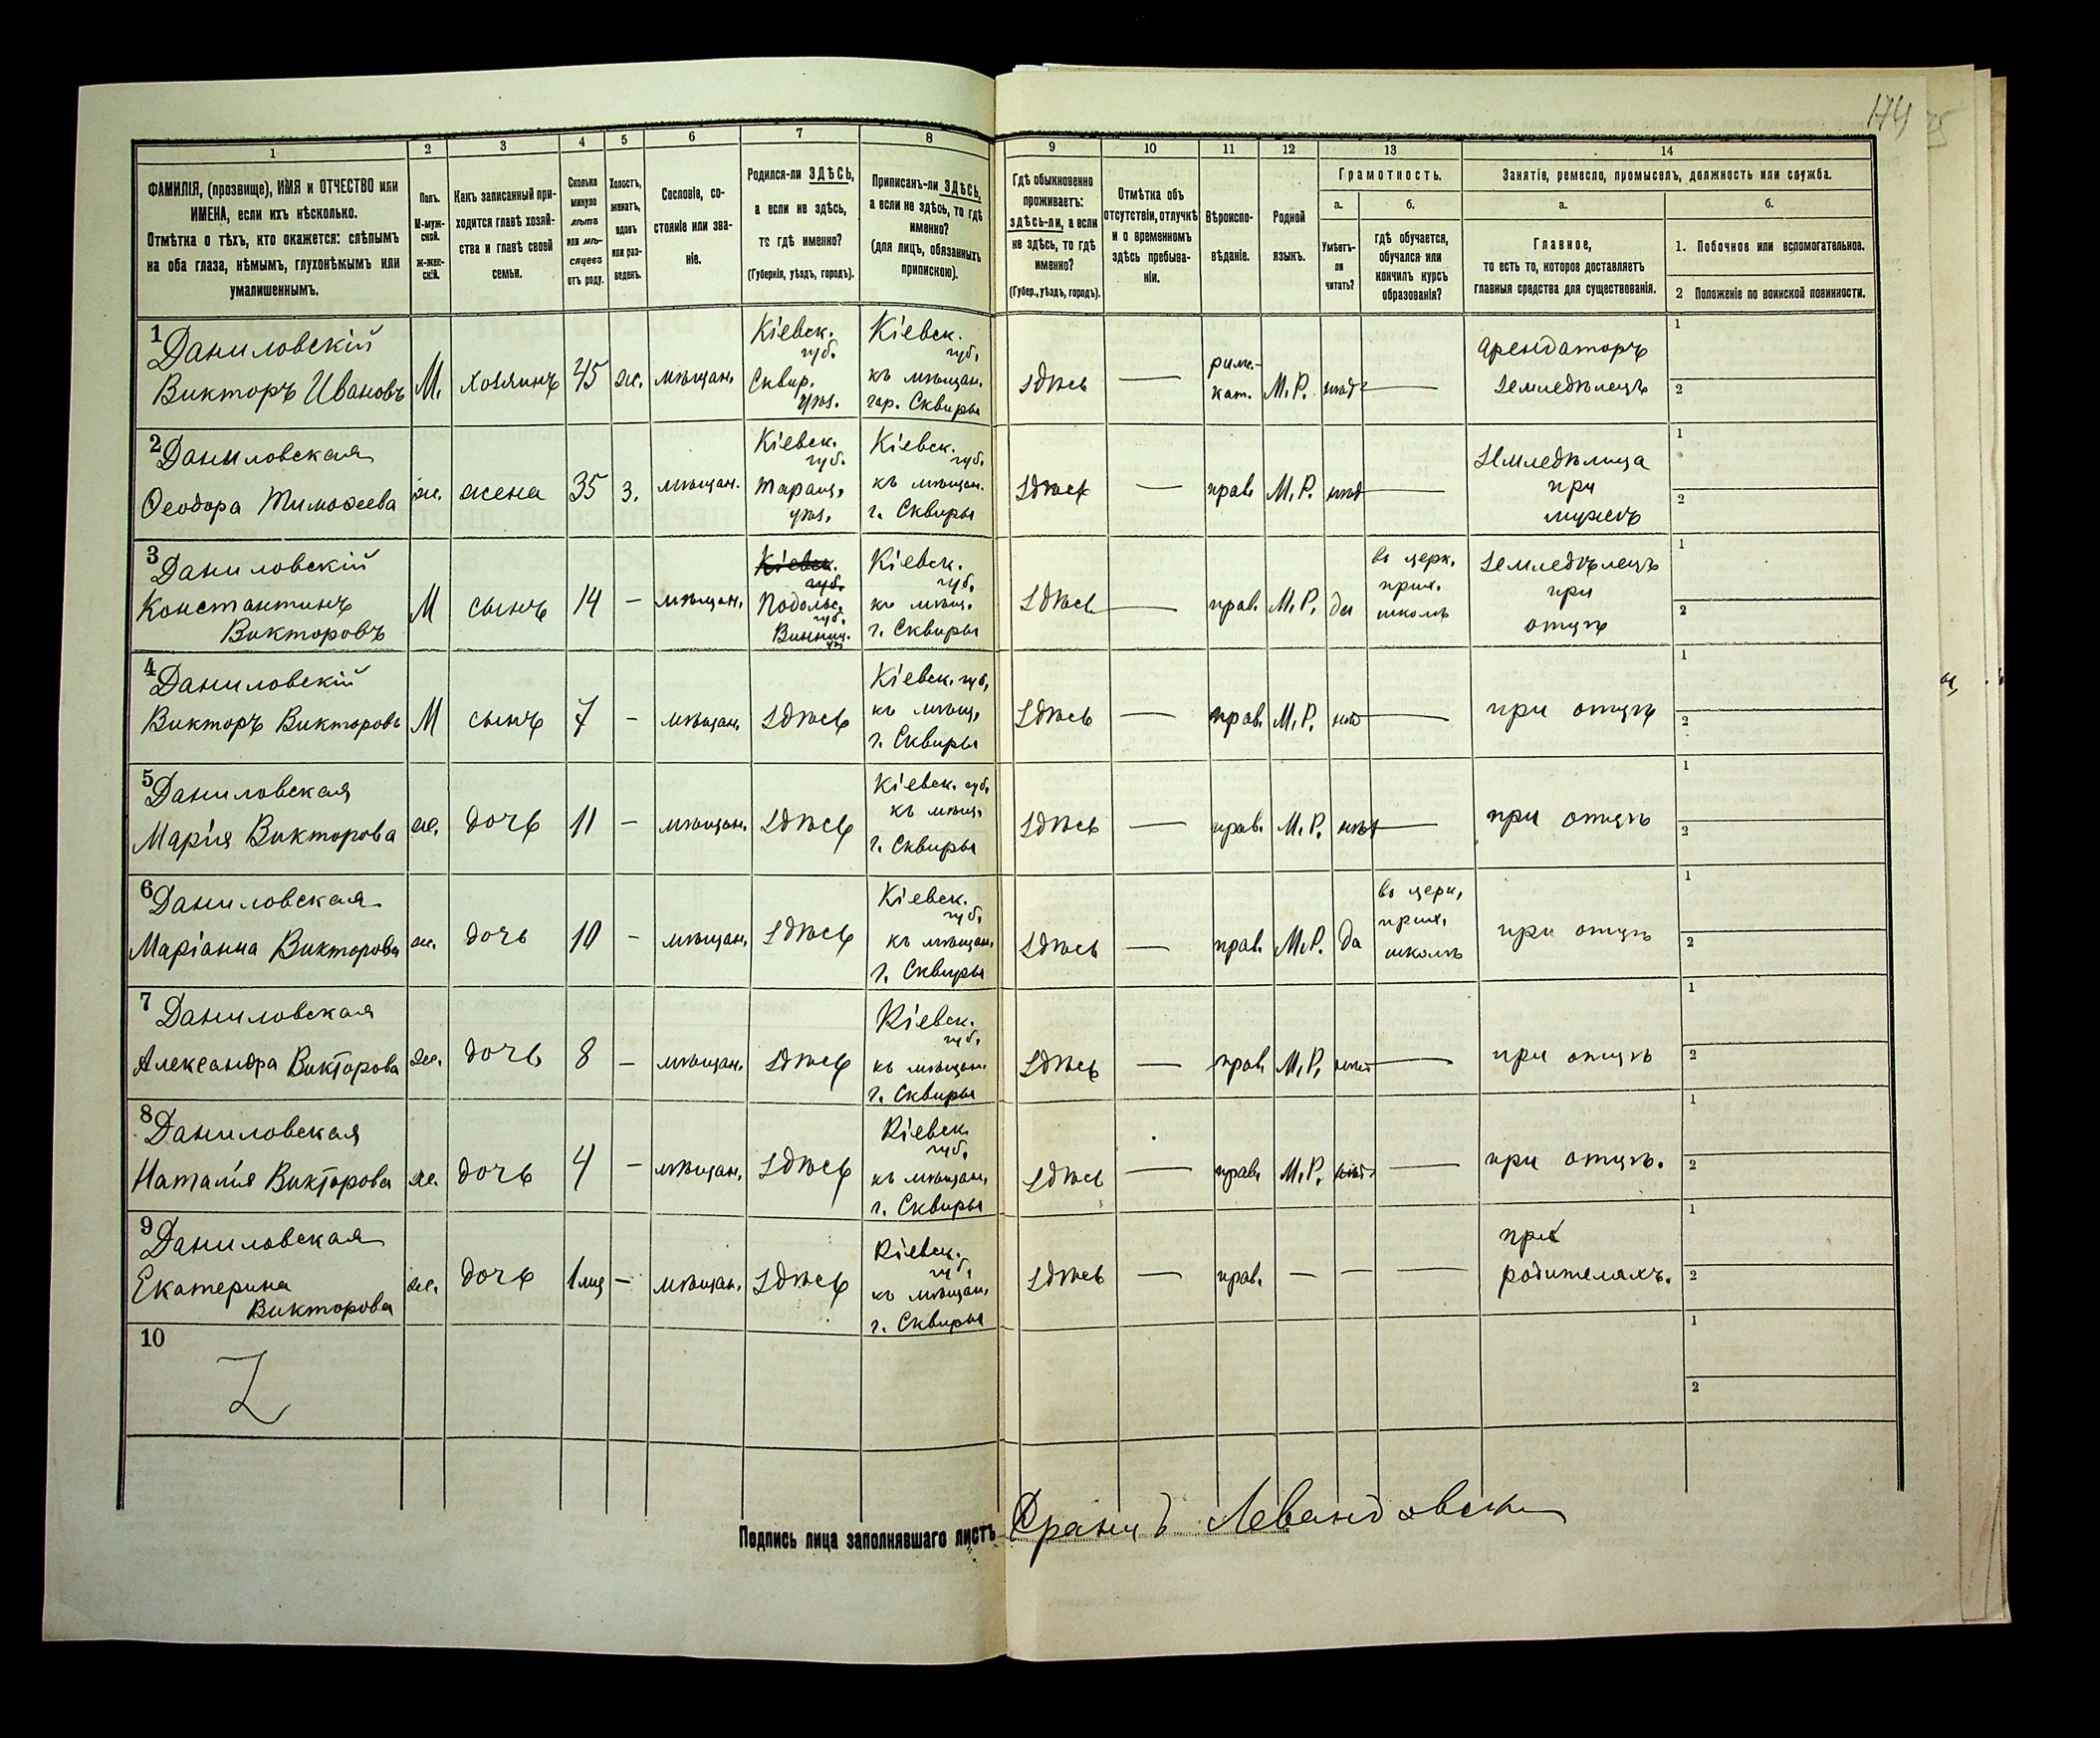 174
1
2
3
4
5
6
7
8
9
10
11
12
13
14
ФАМИЛІЯ, (прозвище), ИМЯ и ОТЧЕСТВО или
ИМЕНА, если ихъ нѣсколько.
Отмѣтка о тѣхъ, кто окажется: слѣпымъ
на оба глаза, нѣмымъ, глухонѣмымъ или
умалишеннымъ.
Полъ.
М-муж-
ской.
ж-жен-
скій.
Какъ записанный при-
ходится главѣ хозяй-
ства и главѣ своей
семьи.
Сколько
минуло
лѣтъ
или мѣ-
сяцевъ
отъ роду.
Холостъ,
женатъ,
вдовъ
или раз-
веденъ.
Сословіе, со-
стояніе или зва-
ніе.
Родился-ли ЗДѢСЬ,
а если не здѣсь,
то гдѣ именно?
(Губернія, уѣздъ, городъ).
Приписанъ-ли ЗДѢСЬ,
а если не здѣсь, то гдѣ
именно?
(для лицъ, обязанныхъ
припискою).
Гдѣ обыкновенно
проживаетъ:
здѣсь-ли, а если
не здѣсь, то гдѣ
именно?
(Губер., уѣздъ, городъ).
Отмѣтка объ
отсутствіи, отлучкѣ
и о временномъ
здѣсь пребыва-
ніи.
Вѣроиспо-
вѣданіе.
Родной
языкъ.
Грамотность.
а.
Умѣетъ-
ли
читать?
б.
гдѣ обучается,
обучался или
кончилъ курсъ
образованія?
Занятіе, ремесло, промыселъ, должность или служба.
а.
Главное,
то есть то, которое доставляетъ
главныя средства для существованія.
б.
1. Побочное или вспомогательное.
2 Положеніе по воинской повинности.
1
Даниловскій
Викторъ Ивановъ
М.
хозяинъ
45
ж.
мѣщан.
Кіевск.
губ.
Сквир.
уѣз.
Кіевск.
губ.
къ мѣщан.
гор. Сквиры
здѣсь
—
рим.-
кат.
М.Р.
нѣт
—
Арендаторъ
земледѣлецъ
1
2
2
Даниловская
Ѳеодора Тимоѳеева
ж.
жена
35
з.
мѣщан.
Кіевск.
губ.
Таращ.
уѣз.
Кіевск.
губ.
къ мѣщан.
г. Сквиры
здѣсь
—
прав.
М.Р.
нѣт
—
Земледѣлица
при
мужѣ
1
2
3
Даниловскій
Константинъ
Викторовъ
М
сынъ
14
—
мѣщан.
Кіевск.
губ.
Подольс.
губ.
Винниц.
уз
Кіевск.
губ.
къ мѣщ.
г. Сквиры
здѣсь
—
прав.
М.Р.
да
въ церк.
прих.
школѣ
Земледѣлецъ
при
отцѣ
1
2
4
Даниловскій
Викторъ Викторовъ
М
сынъ
7
—
мѣщан.
здѣсь
Кіевск. губ.
къ мѣщ.
г. Сквиры
здѣсь
—
прав.
М.Р.
нѣт
—
при отцѣ
1
2
5
Даниловская
Марія Викторова
ж.
дочь
11
—
мѣщан.
здѣсь
Кіевск. губ.
къ мѣщ.
г. Сквиры
здѣсь
—
прав.
М.Р.
нѣт
—
при отцѣ
1
2
6
Даниловская
Маріанна Викторова
ж.
дочь
10
—
мѣщан.
здѣсь
Кіевск.
губ.
къ мѣщан.
г. Сквиры
здѣсь
—
прав.
М.Р.
да
въ церк.
прих.
школѣ
при отцѣ
1
2
7
Даниловская
Александра Викторова
ж.
дочь
8
—
мѣщан.
здѣсь
Кіевск.
губ.
къ мѣщан.
г. Сквиры
здѣсь
—
прав.
М.Р.
нѣт
—
при отцѣ
1
2
8
Даниловская
Наталія Викторова
ж.
дочь
4
—
мѣщан.
здѣсь
Кіевск.
губ.
къ мѣщан.
г. Сквиры
здѣсь
—
прав.
М.Р.
нѣт
—
при отцѣ.
1
2
9
Даниловская
Екатерина
Викторова
ж.
дочь
1 мц
—
мѣщан.
здѣсь
Кіевск.
губ.
къ мѣщан.
г. Сквиры
здѣсь
—
прав.
—
—
—
при
родителяхъ.
1
2
10
1
2
Подпись лица заполнявшаго листъ Францъ Левандовски